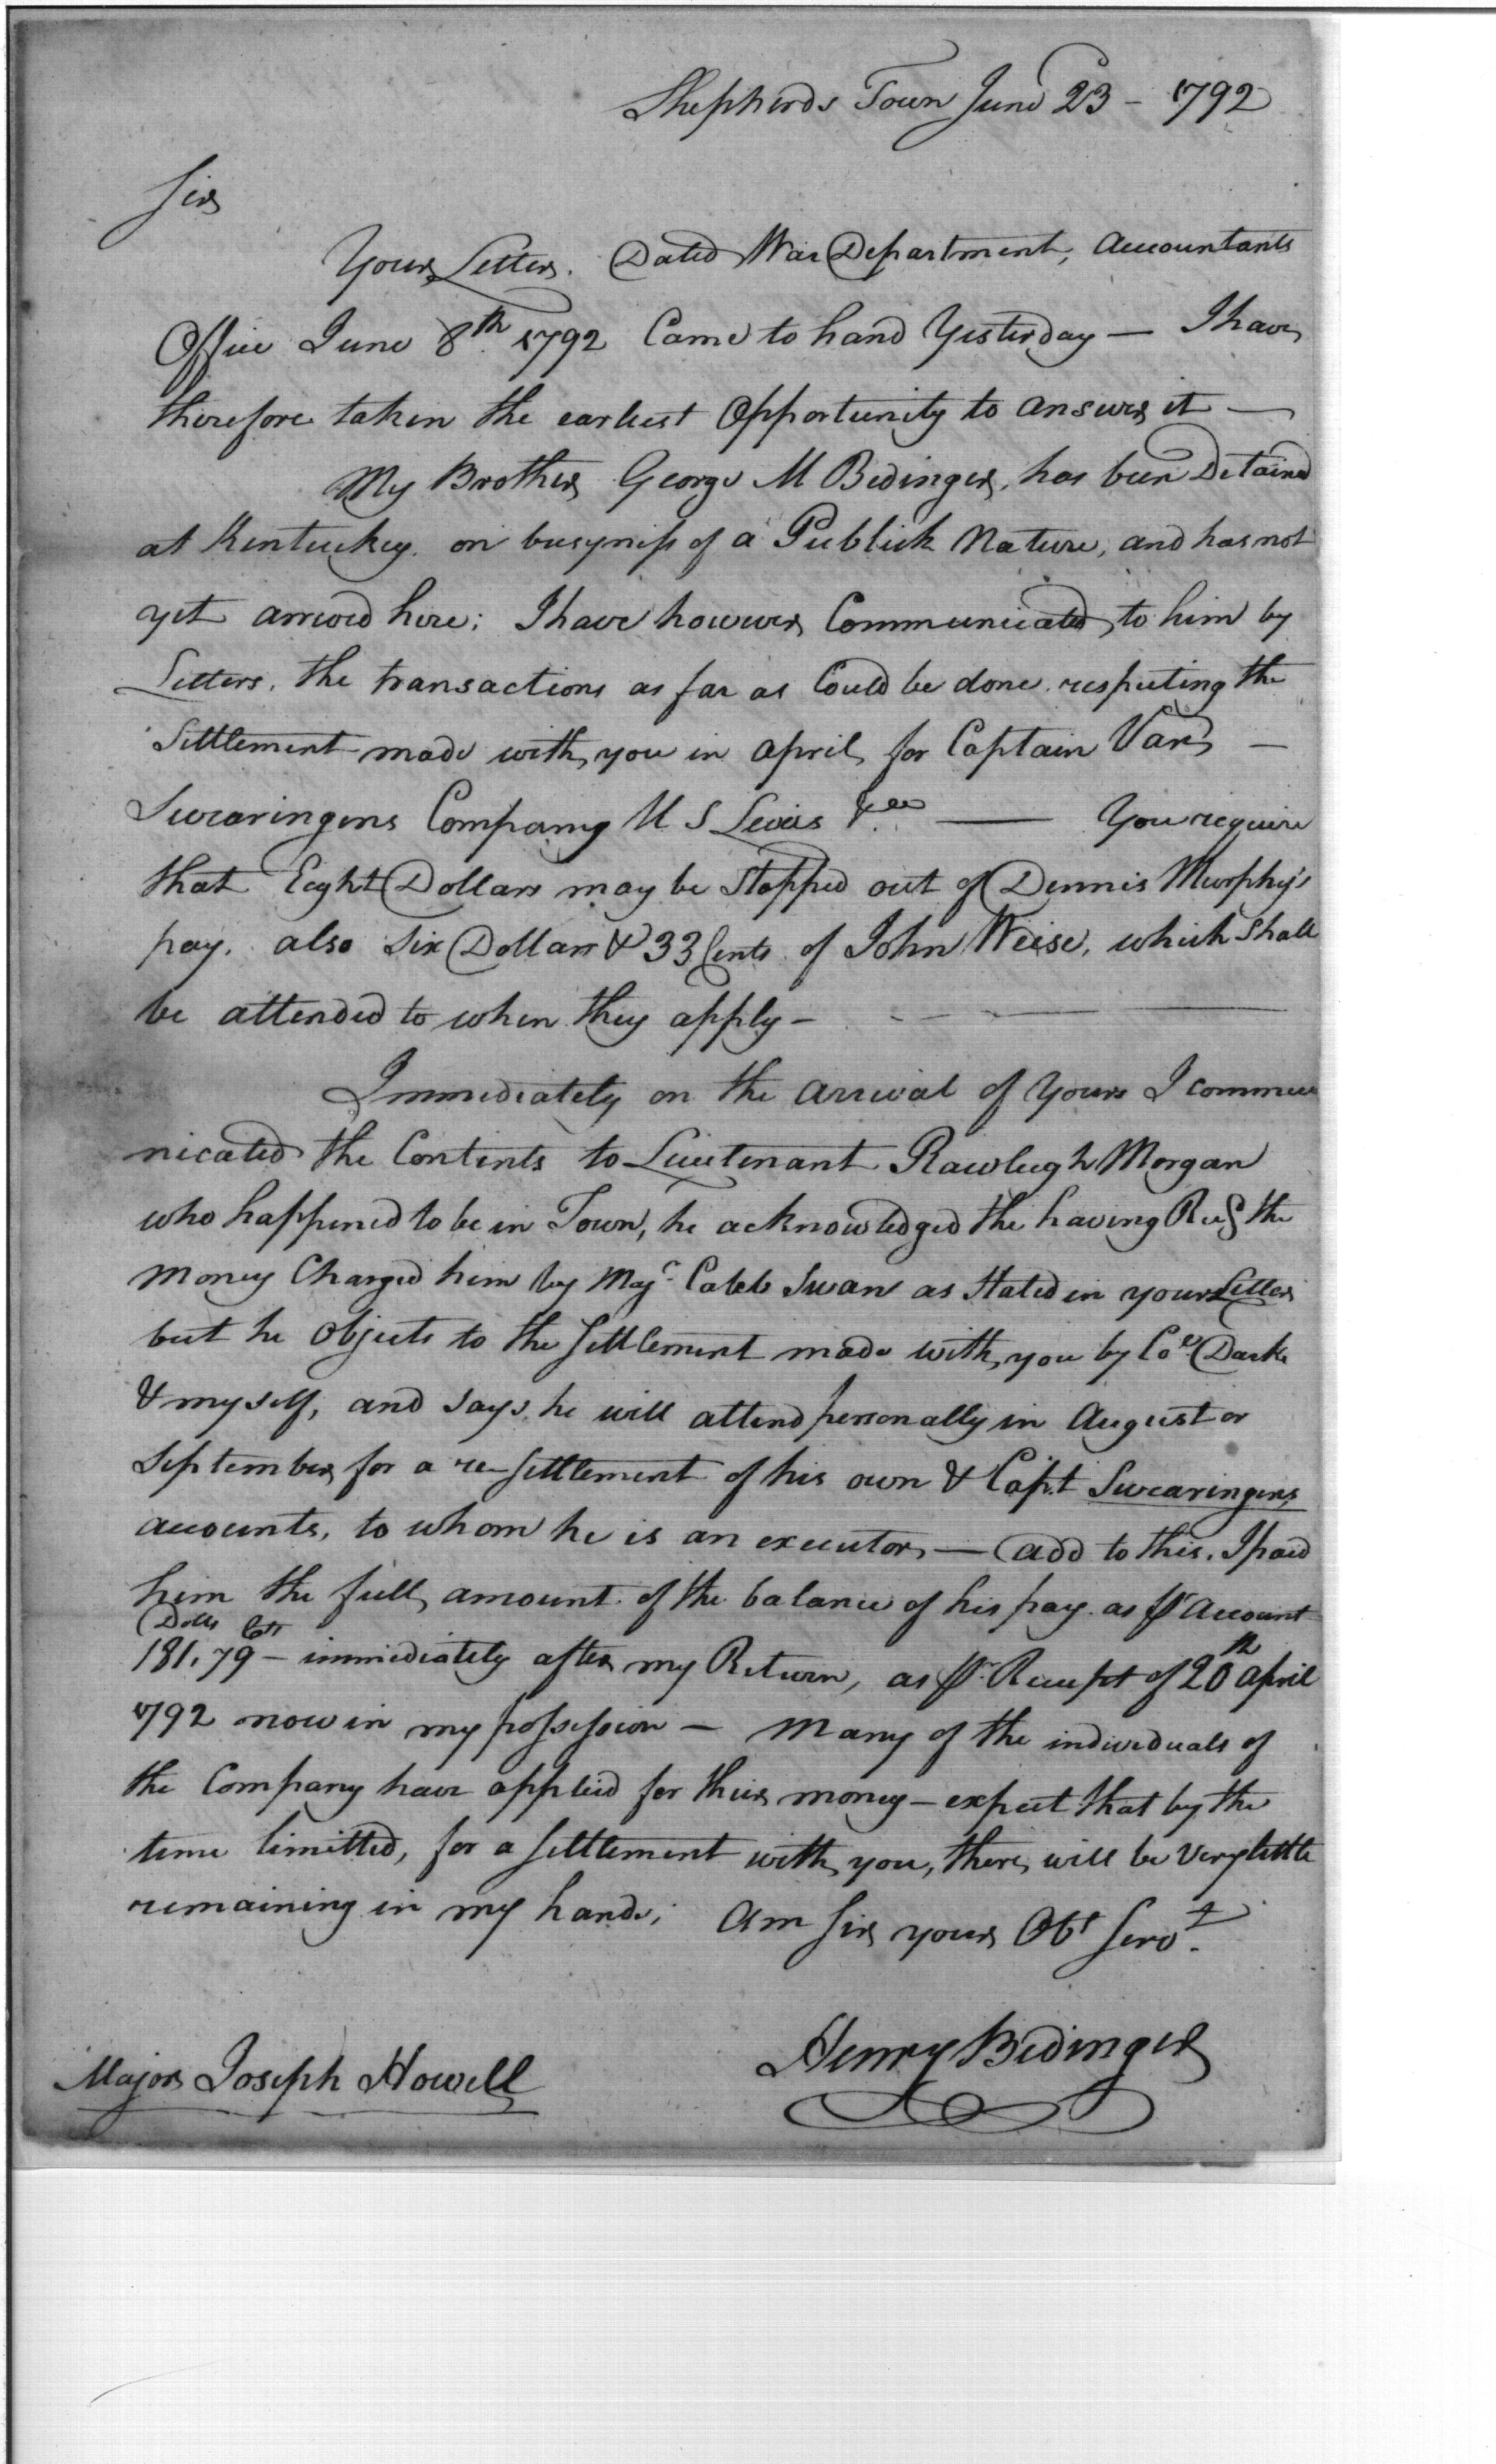 Shepherds Town June 23 - 1792
Sir
Your Letter. Dated War Department, Accountants
Office June 8th 1792 Came to hand Yesterday — I have
therefore taken the earliest Opportunity to answer it —
My Brother George M Bedinger, has been Detained
at Kentuckey. on busyness of a Publick Nature, and has not
yet arrived here; I have however Communicated to him by
Letters. the transactions as far as Could be done. respecting the
Settlement made with you in april for Captain Van —
Swearingens Company U S Levies &ca —— You require
that Eight Dollars may be Stopped out of Dennis Murphy's
pay. also Six Dollars & 33 Cents of John Weise, which Shall
be attended to when they apply —
Immediately on the arrival of Yours I commu
nicated the Contents to Lieutenant Rawleigh Morgan
who happened to be in Town, he acknowledged the having Recd the
money Charged him by Majr Caleb Swan as Stated in your Letter
but he Objects to the Settlement made with you by Col Darke
& myself, and says he will attend personally in August or
September for a re-settlement of his own & Capt Swearingens
accounts, to whom he is an executor — add to this. I paid
him the full amount of the balance of his pay as pr Account
Dolls Cts
181.79 — immediately after my Return, as pr Receipt of 20th april
1792 now in my possession — Many of the individuals of
the Company have applied for their money — expect that by the
time limitted, for a settlement with you, there will be very little
remaining in my hands; am Sir your Obt Servt
Henry Bedinger
Major Joseph Howell